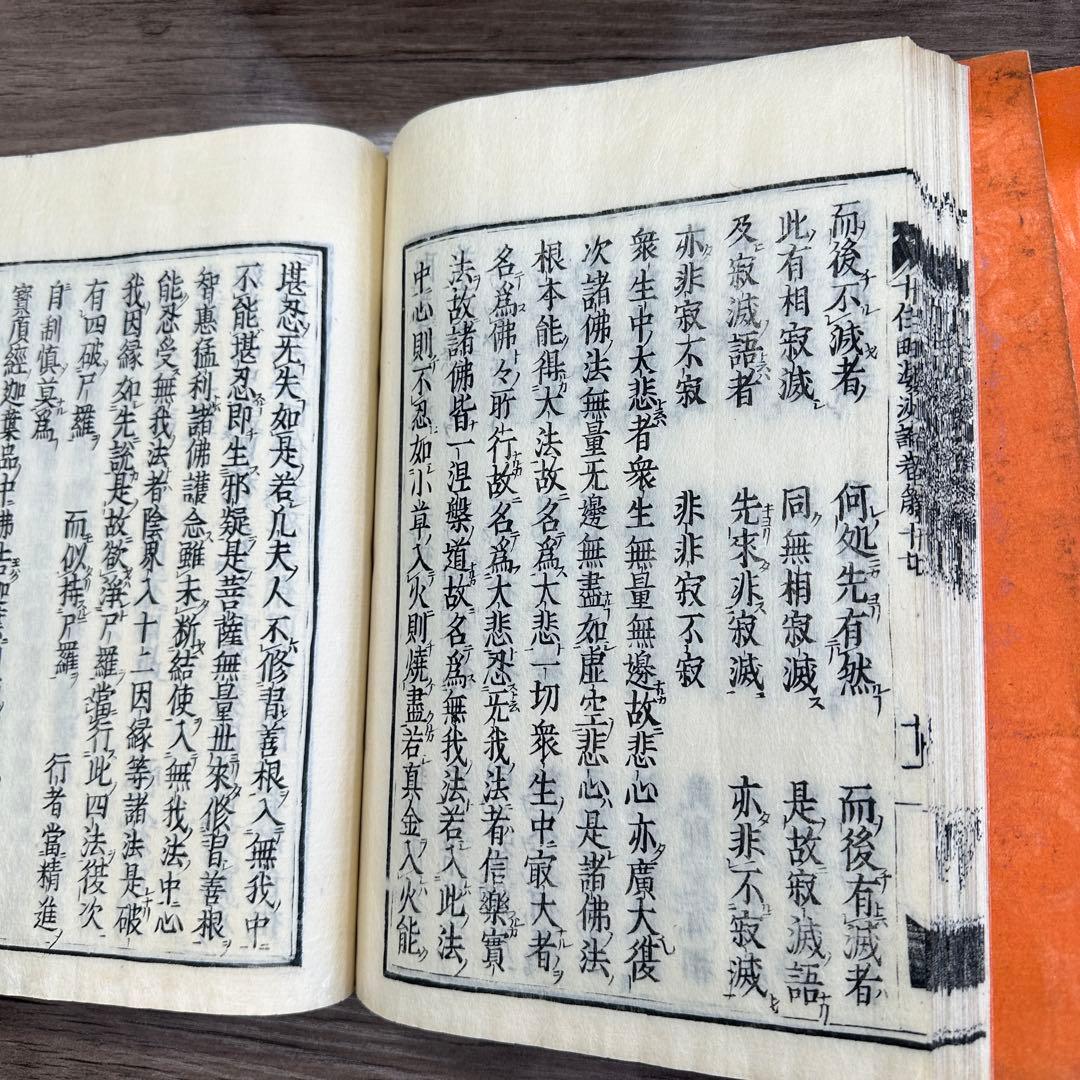 而後不滅者　何処先有然　而後有滅者
此有相寂滅　同無相寂滅　是故寂滅語
及寂滅語者　先來非寂滅　亦非不寂滅
亦非寂不寂　非非寂不寂
衆生中大悲者衆生無量無邊故悲心亦廣大復
次諸佛法無量无邊無盡如虛空悲心是諸佛法
根本能得大法故名爲大悲一切衆生中㝡大者
名爲佛々所行故名爲大悲忍无我法者信樂實
法故諸佛皆一涅槃道故名爲無我法若入此法
中心則不忍如小草入火則燒盡若真金入火能
堪忍无失如是若凢夫人不修習善根入無我中
不能堪忍即生邪疑是菩薩無量世來修習善根
智惠猛利諸佛護念雖未断結使入無我法中心
能忍受無我法者陰界入十二因縁等諸法是破
我因縁如先說是故欲淨尸羅當行此四法復次
有四破尸羅　而似持尸羅　行者當精進
自制慎莫爲
寳頂經迦葉品中佛告迦葉